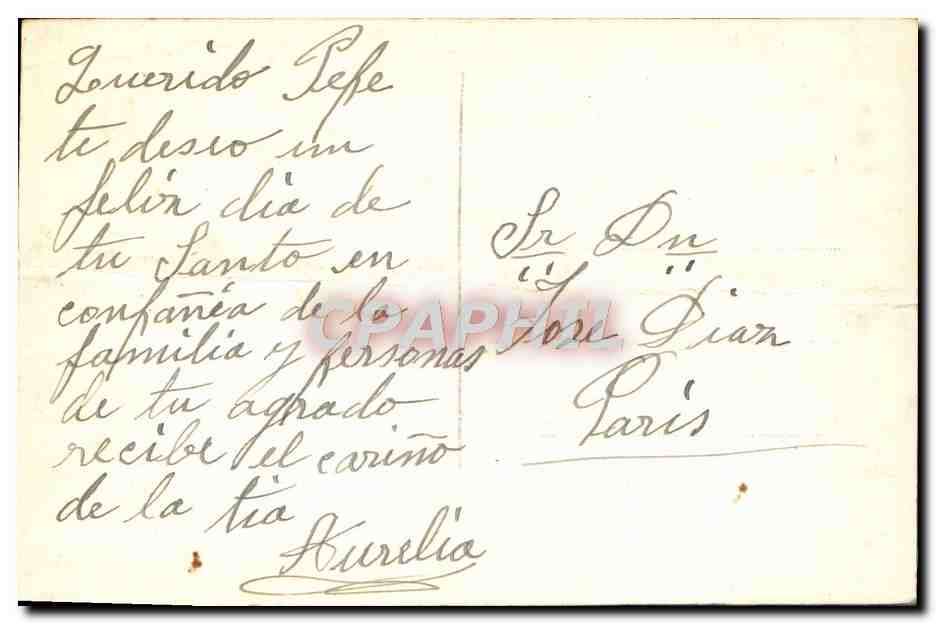 Querido Pepe
te deseo un
felin dia de
tu Santo en
conpañia de la
familia y personas
de tu agrado
recibe el cariño
de la tia
Aurelia
Sr Dn
Jose Diaz
Paris
CPAPHIL